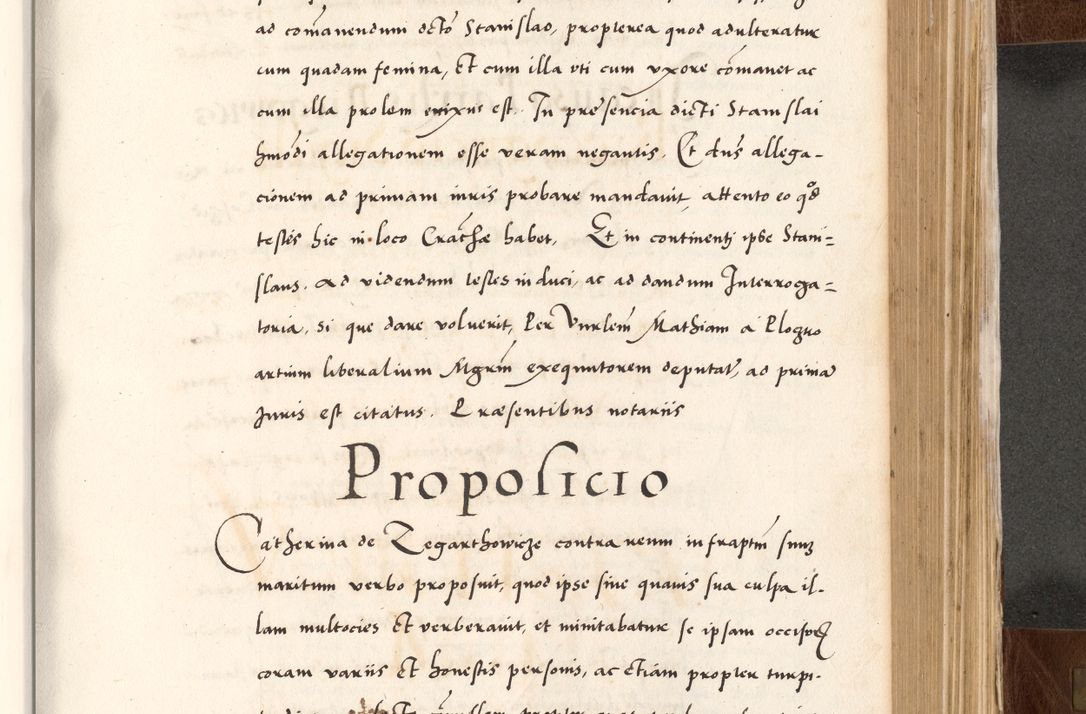 ad com̃anendum dc̃to Stanislao, propterea quod adulteratur
cum quadam femina, Et cum illa vti cum vxore com̃anet ac
cum illa prolem enixus est. In presencia dicti Stanislai
hmo͂di allegationem esse veram negantis. Et dns̃ allega-
cionem ad primam iuris probare mandauit, attento eo qd̊
testes hic in loco Crac̃hæ habet, Et in continenti ipse Stani=
slaus. ad videndum testes induci, ac ad dandum Interroga=
toria, si que dare voluerit, Per Vnrlem̃ Mathiam a Ploczko
artium liberalium Mgrm̃ exequutorem deputat, ad prima
Juris est citatus. Præsentibus notariis
Proposicio
Catherina de Zegarthowicze contra reum infraptm̃ suum
maritum verbo proposuit, quod ipse sine quauis sua culpa il-
lam multocies Et verberauit, et minitabatur se ipsam occisurum
coram variis Et honestis personis, ac Etiam propter turpi-